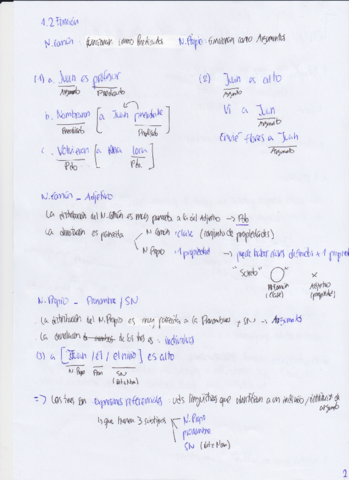 1.2 Función
N. Común: funcionan como Predicados N. Propio: funcionan como Argumentos
(1) a. Juan es profesor (2) Juan es alto
Argumento Predicado Argumento
b. Nombraron [a Juan presidente] Vi a Juan
Predicado Predicado Argumento
c. Volvieron [a Ana loca] Envié flores a Juan
Pdo. Pdo. Argumento
N. Común - Adjetivo
La distribución del N. Común es muy parecida a la del adjetivo → Pdo
La denotación es parecida N. Común: clase (conjunto de propiedades)
N. Propio: 1 propiedad → puede haber clases distintas + 1 propiedad
N. Propio - Pronombre / SN
La distribución del N. Propio es muy parecida a la Pronombres y SN → Argumento
La denotación de los tres es: individuos
(3) a [Juan / él / el niño] es alto
N. Propio Pron SN
(Det + Nom)
=> Los tres son expresiones referenciales: uds lingüísticas que identifican a un individuo /
los que tienen 3 subtipos N. Propio
pronombre
SN (Det + Nom)
2